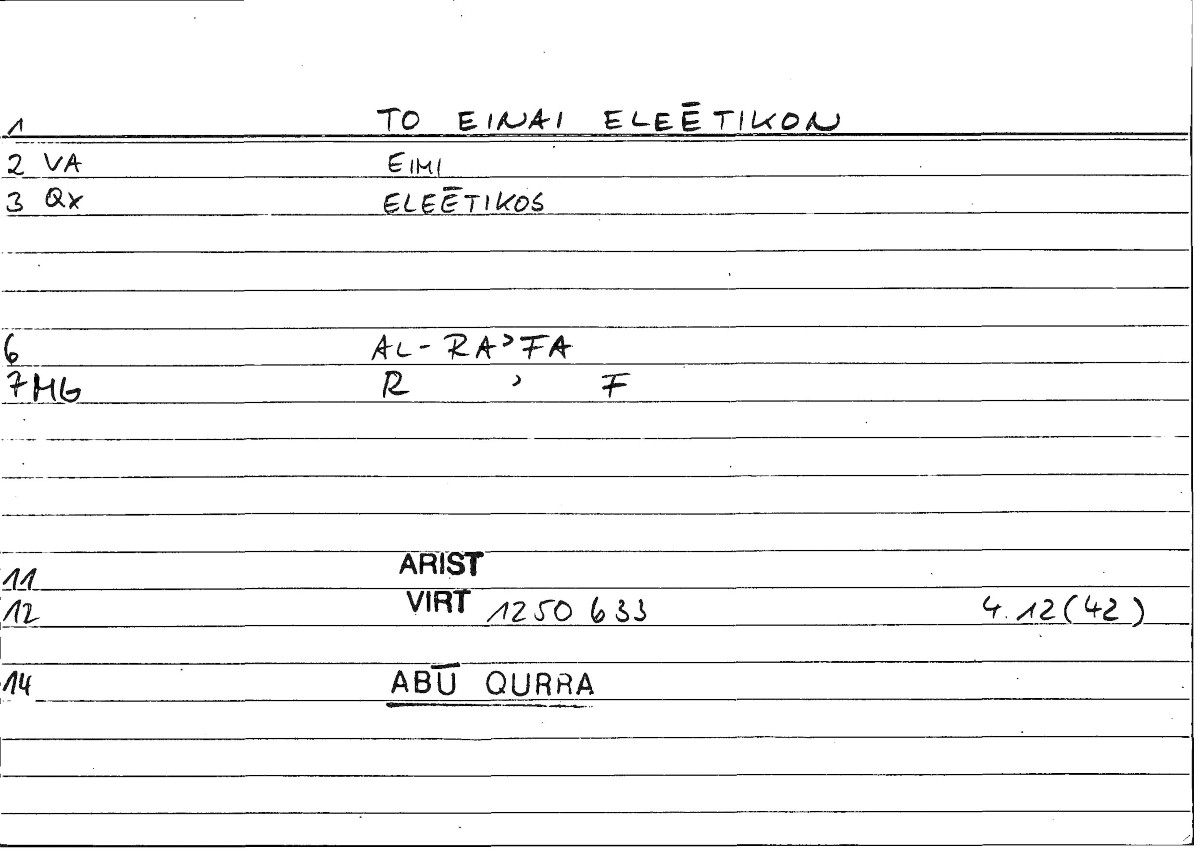 1 TO EINAI ELEĒTIKON
2 VA EIMI
3 Qx ELEĒTIKOS
6 AL-RAʾFA
7 MG R ʾ F
11 ARIST
12 VIRT 1250 b 33 4.12(42)
14 ABŪ QURRA